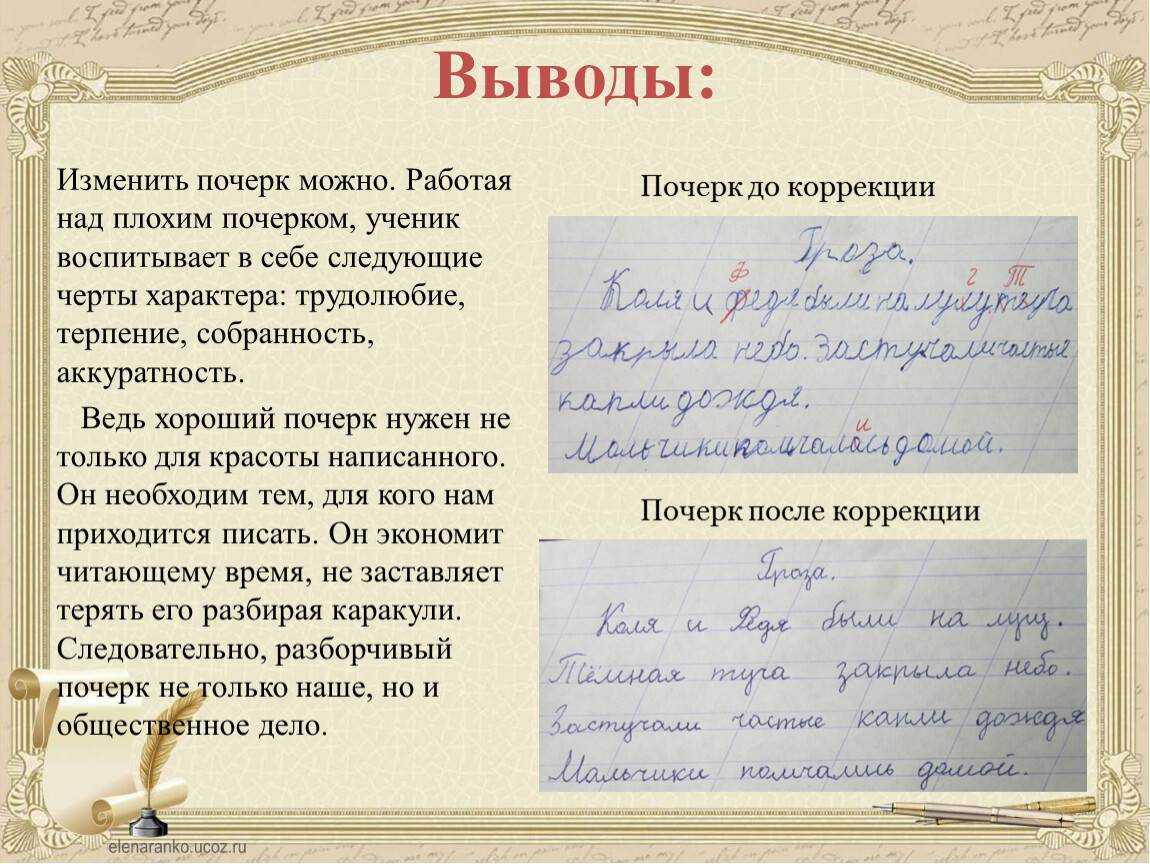 Выводы:
Изменить почерк можно. Работая
над плохим почерком, ученик
воспитывает в себе следующие
черты характера: трудолюбие,
терпение, собранность,
аккуратность.
Ведь хороший почерк нужен не
только для красоты написанного.
Он необходим тем, для кого нам
приходится писать. Он экономит
читающему время, не заставляет
терять его разбирая каракули.
Следовательно, разборчивый
почерк не только наше, но и
общественное дело.
Почерк до коррекции
Гроза.
Ф г Т
Коля и федя были на
закрыла небо. Застучали частые
капли дождя.
и
Мальчики помчались домой.
Почерк после коррекции
Гроза.
Коля и Федя были на лугу.
Тёмная туча закрыла небо.
Застучали частые капли дождя
Мальчики помчались домой.
elenaranko.ucoz.ru